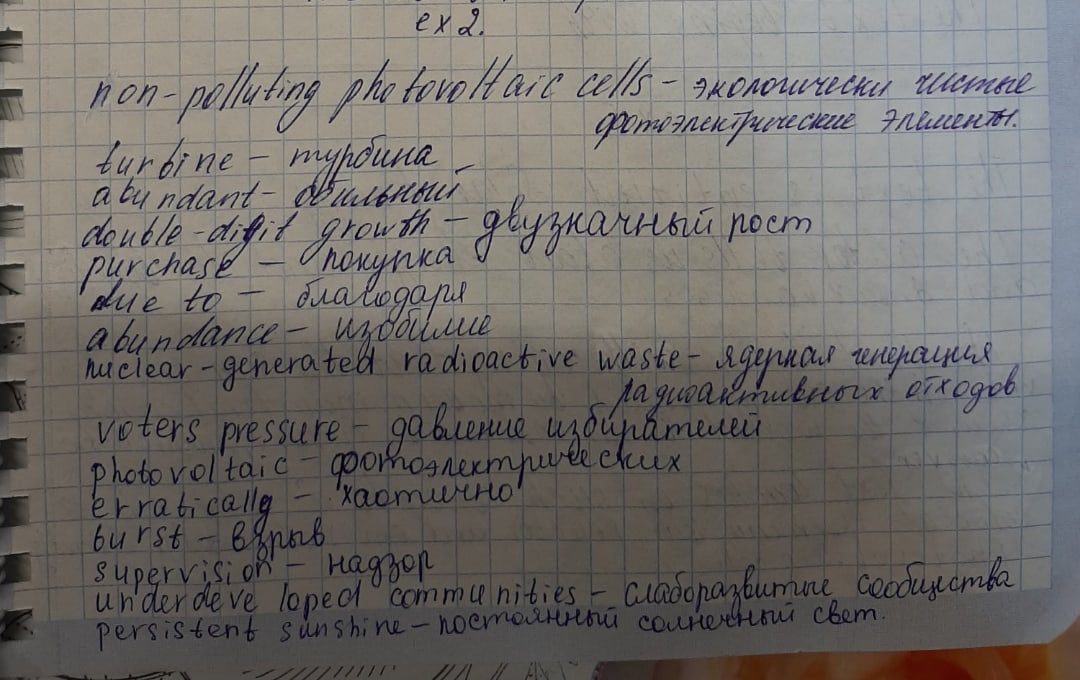 ex 2.
non-polluting photovoltaic cells - экологически чистые
фотоэлектрические элементы.
turbine - турбина
abundant - обильный
double-digit growth - двузначный рост
purchase - покупка
due to - благодаря
abundance - изобилие
nuclear-generated radioactive waste - ядерная генерация
радиоактивных отходов
voters pressure - давление избирателей
photovoltaic - фотоэлектрических
erratically - хаотично
burst - взрыв
supervision - надзор
underdeveloped communities - слаборазвитые сообщества
persistent sunshine - постоянный солнечный свет.